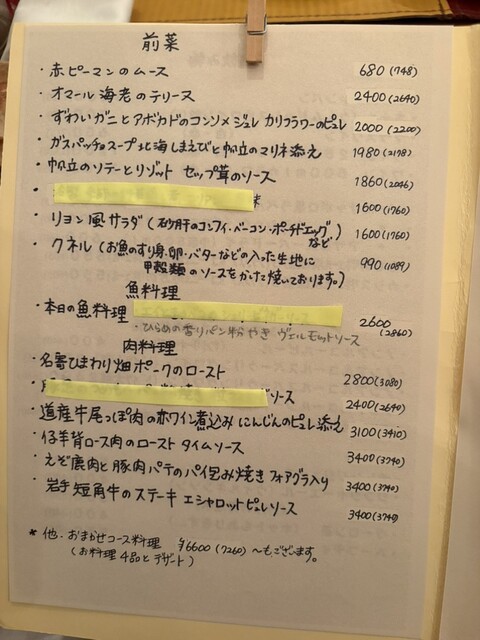 前菜
・赤ピーマンのムース 680(748)
・オマール海老のテリーヌ 2400(2640)
・ずわいガニとアボカドのコンソメジュレ カリフラワーのピュレ 2000(2200)
・ガスパッチョスープ 北海しまえびと帆立のマリネ添え 1980(2178)
・帆立のソテーとリゾット セップ茸のソース 1860(2046)
・ 1600(1760)
・リヨン風サラダ(砂肝のコンフィ・ベーコン・ポーチドエッグなど) 1600(1760)
・クネル(お魚のすり身・卵・バターなどの入った生地に
甲殻類のソースをかけて焼いております。) 990(1089)
魚料理
・本日の魚料理 2600(2860)
・ひらめの香りパン粉やき ヴェルモットソース
肉料理
・名寄ひまわり畑ポークのロースト 2800(3080)
・ ソース 2400(2640)
・道産牛尾っぽ肉の赤ワイン煮込み にんじんのピュレ添え 3100(3410)
・仔羊背ロース肉のロースト タイムソース 3400(3740)
・えぞ鹿肉と豚肉パテのパイ包み焼き フォアグラ入り 3400(3740)
・岩手短角牛のステーキ エシャロットピルソース 3400(3740)
* 他、おまかせコース料理 ¥6600(7260)〜もございます。
(お料理4品とデザート)